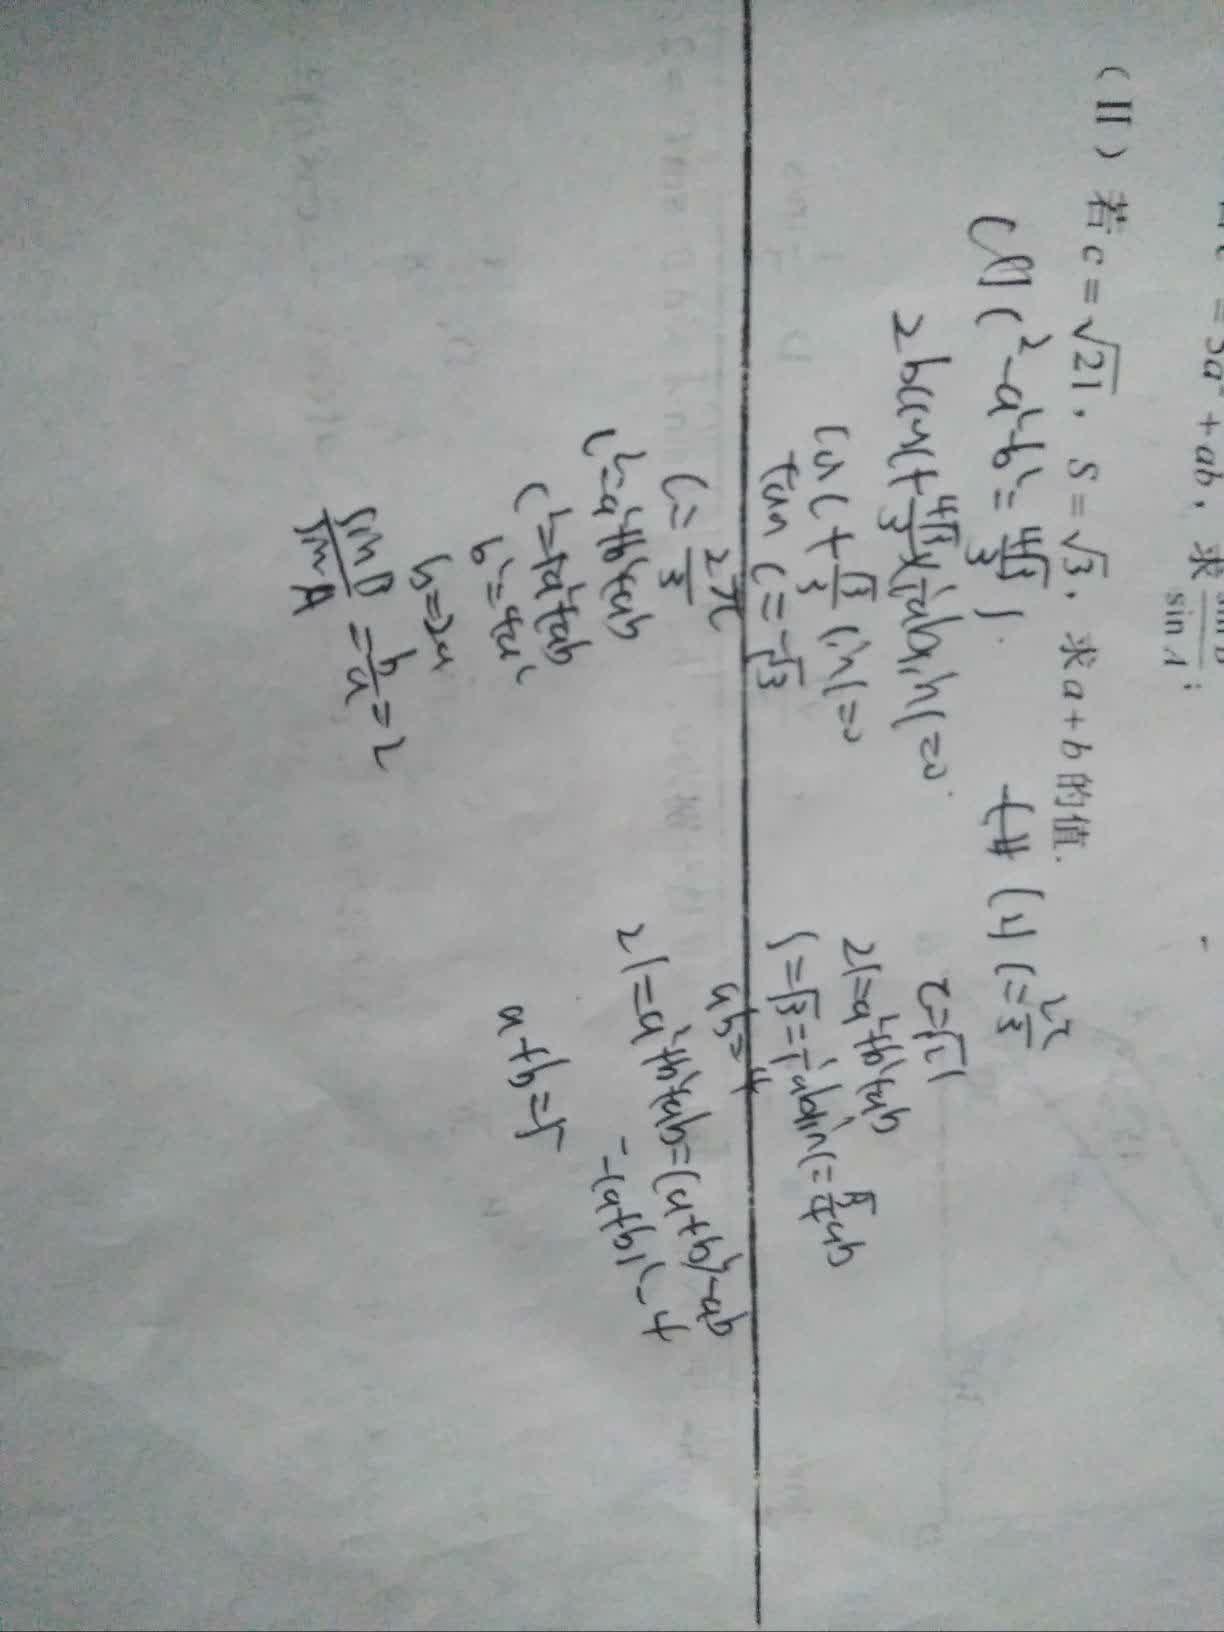 = 5a² + ab, 求 sin B / sin A ;
(II) 若 c = √21, S = √3, 求 a + b 的值.
c²-a²-b² = 4√3/3 S.
2abcosC + 4√3/3 × 1/2 absinC = 0.
cosC + √3/3 sinC = 0
tan C = -√3
C = 2π/3
c² = a²+b²+ab
c² = 5a²+ab
b² = 4a²
b = 2a
sinB / sinA = b/a = 2
(1) C = 2π/3
c = √21
21 = a²+b²+ab
S = √3 = 1/2 absinC = √3/4 ab
ab = 4
21 = a²+b²+ab = (a+b)²-ab
= (a+b)²-4
a+b = 5